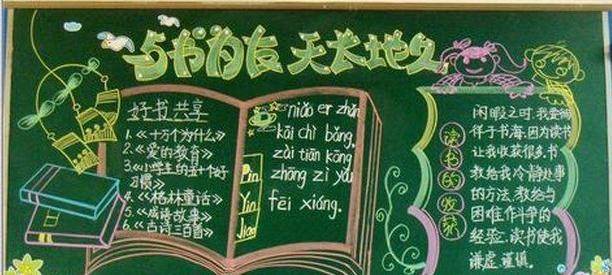 与书为友 天长地久
好书共享
1.《十万个为什么》
2.《爱的教育》
3.《小学生的五十个好
习惯》
4.《格林童话》
5.《成语故事》
6.《古诗三百首》
niǎo er zhǎn
kāi chì bǎng.
zài tiān kōng
zhōng zì yóu
fēi xiáng.
Pin
Yin
Jiao
读书的收获
闲暇之时,我喜徜
徉于书海.因为读书
让我收获很多.书
教给我冷静处事
的方法,教给与
困难作斗争的
经验.读书使我
谦虚.谨慎.